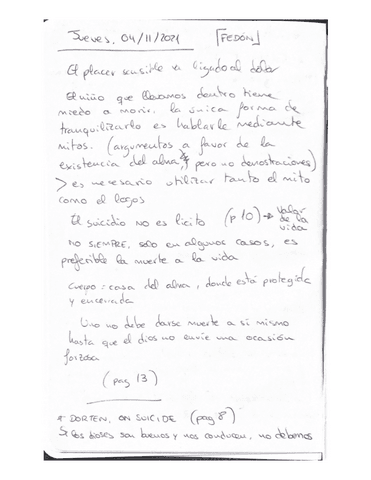 Jueves, 04/11/2021 [FEDÓN]
El placer sensible va ligado al dolor
El niño que llevamos dentro tiene
miedo a morir. la única forma de
tranquilizarlo es hablarle mediante
mitos. (argumentos a favor de la
existencia del alma, pero no demostraciones)
> es necesario utilizar tanto el mito
como el logos
El suicidio no es lícito (p 10) → Valor
de la
vida
NO SIEMPRE, solo en algunos casos, es
preferible la muerte a la vida
cuerpo = casa del alma, donde está protegida
y encerrada
Uno no debe darse muerte a sí mismo
hasta que el dios no envíe una ocasión
forzosa
(pag 13)
* DORTEN, ON SUICIDE (pag 8)
Si los dioses son buenos y nos conducen, no debemos